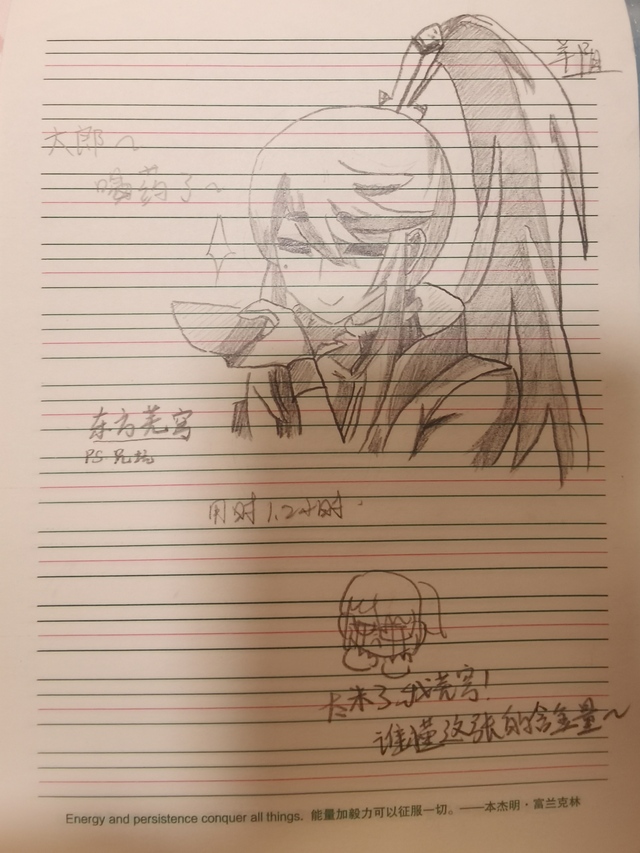 羊阳
大郎~
喝药了~
东方芜穹
PS 兄坑
用时1.2小时.
卡米了我芜穹!
谁懂这张的含金量~
Energy and persistence conquer all things. 能量加毅力可以征服一切。——本杰明·富兰克林